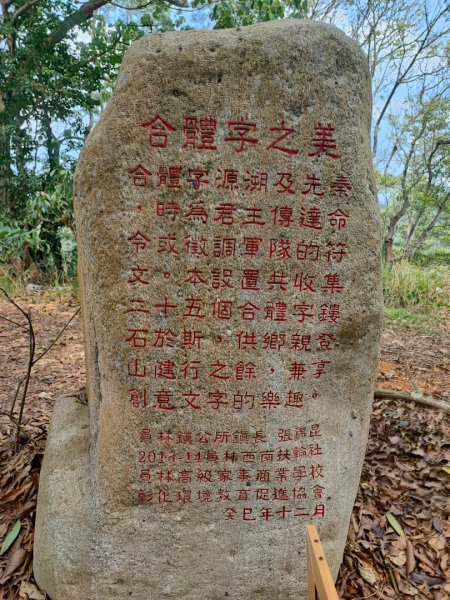 合體字之美
合體字源溯及先秦
。時為君王傳達命
令或徵調軍隊的符
文。本設置共收集
三十五個合體字鏤
石於斯，供鄉親登
山健行之餘，兼享
創意文字的樂趣。
員林鎮公所鎮長 張錦昆
2013-14員林西南扶輪社
員林高級家事商業學校
彰化環境教育促進協會
癸巳年十二月